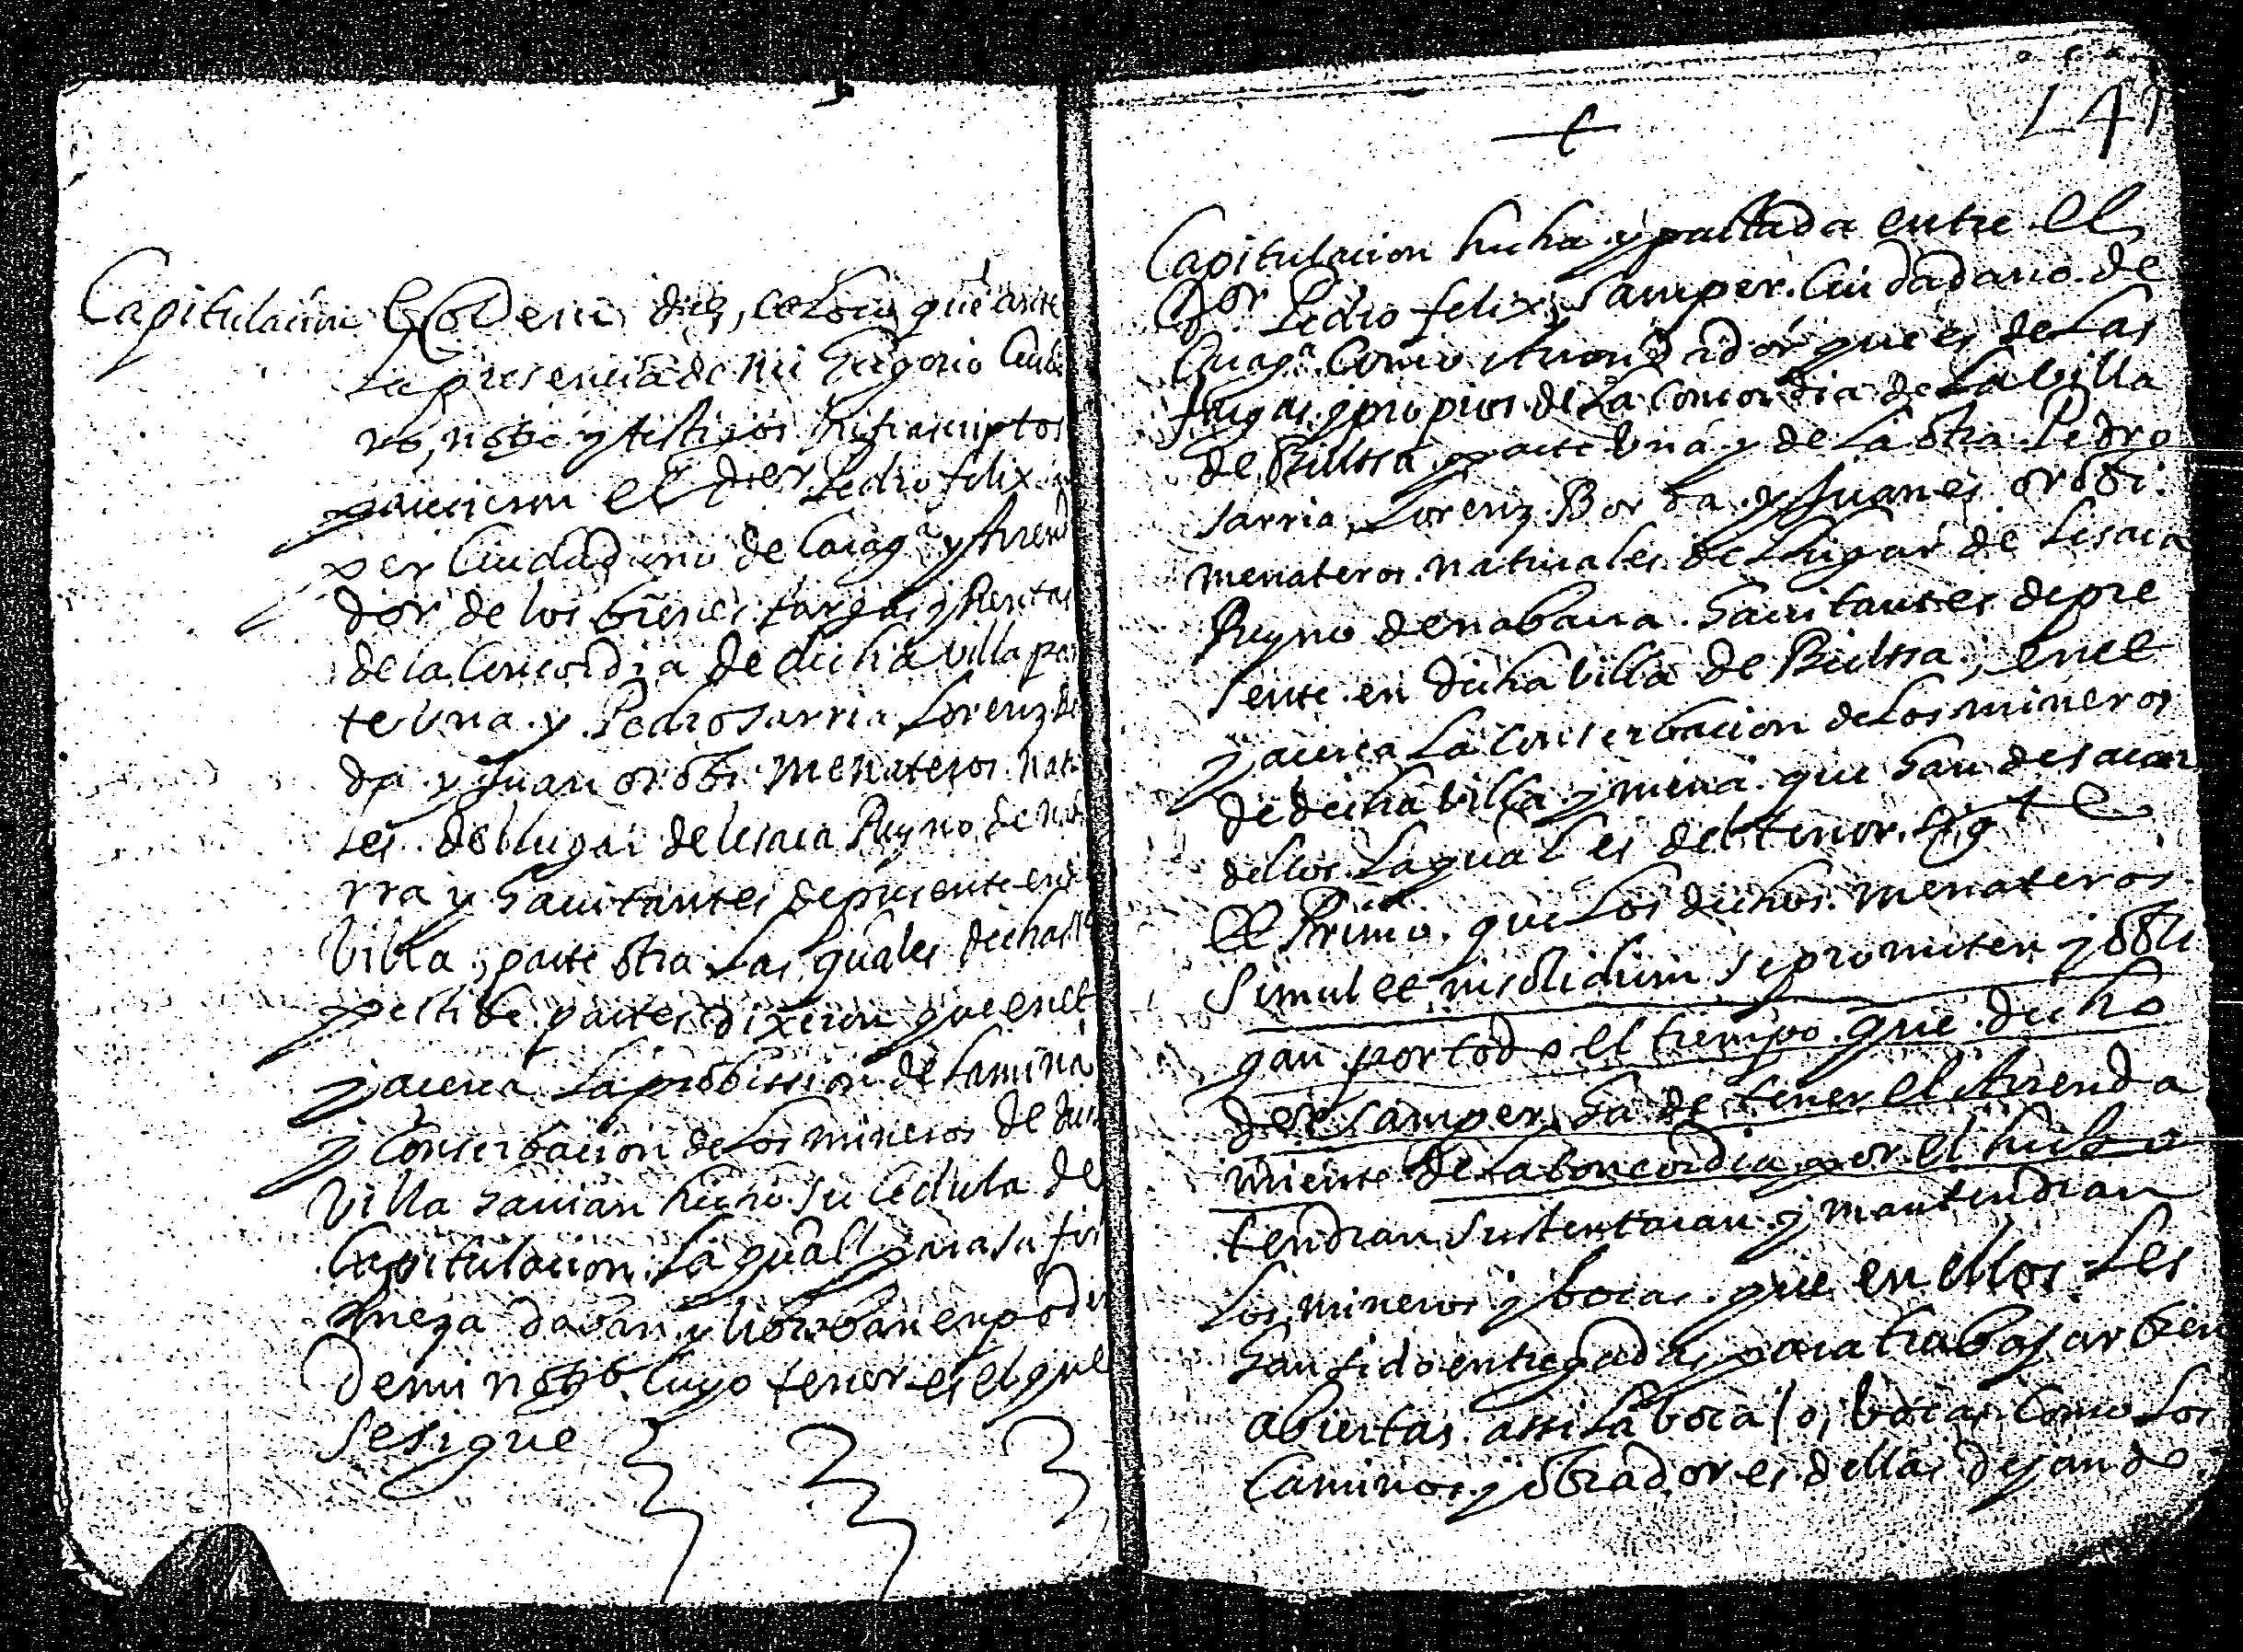 Capitulación Eodem die, et Loco que ante
la presencia de mi Gregorio
notº y testigos infrascriptos
parecieron el Dor Pedro felix
per Ciudadano de Çaragª y Arend
dor de los bienes cargas y Rentas
de la Concordia de dicha villa par
te Una. y Pedro Sarria Lorenz
da y Juan orobi menateros nat
les del lugar de lesaca Reyno de na
rra y havitantes de presente en
Villa, parte otra Las quales dichas
pectibe partes dixeron que en et
y acerca La probission de Lamina
y Conserbacion de Los mineros de dich
Villa havian hecho su Cedula de
Capitulacion. La qual para su fir
meza daban y libraban en poder
De mi notº. Cuyo tenor es el que
se sigue
141
Capitulacion hecha y pactada entre el
Dor Pedro felix Samper. Ciudadano de
Çaragª. Como Arendador que es de Las
y propios de La Concordia de La Villa
de Bielssa parte Una y de La otra Pedro
sarria, Lorenz Borda y Juanes orobi.
menateros. naturales. del Lugar de Lesaca
Reyno de nabarra. havitantes de pre
sente. en dicha Villa de Bielssa, en et
y acerca La Conserbacion de Los mineros
de dicha Villa y mena. que han de sacar
dellos. La qual es del tenor. sigte
Et Primo. que Los dichos. menateros.
Simul et insolidum se prometen y obli
gan por todo el tiempo. que. dicho
dor Samper. ha de tener el Arrenda
miento de La Concordia por el hecho
tendran sustentaran y mantendran
Los mineros y bocas. que en ellos Les
han sido entregadas para trabajar bien
abiertas. assi La boca /o, bocas. Como Los
Caminos. y obradores dellas dejando